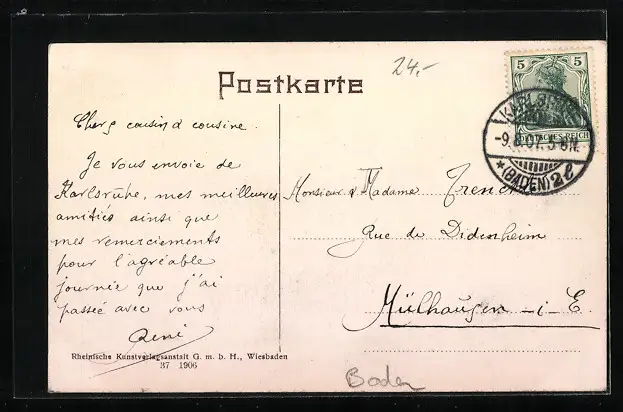 Postkarte
24.-
5 5
DEUTSCHES REICH
-9.
07.
*(BADEN)2ℓ
Chers cousin & cousine.
Je vous envoie de
Karlsruhe, mes meilleures
amitiés ainsi que
mes remerciements
pour l'agréable
journée que j'ai
passée avec vous
René
Monsieur & Madame
Rue de Didenheim
Mülhausen - i - E.
Rheinische Kunstverlagsanstalt G. m. b. H., Wiesbaden
37 1906
Baden